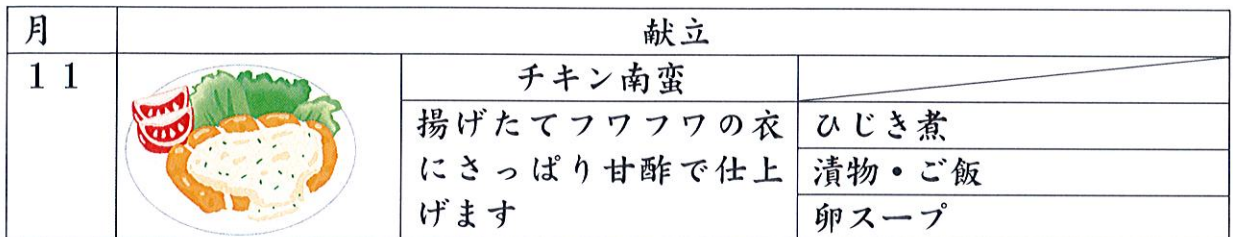 月
献立
11
チキン南蛮
揚げたてフワフワの衣
にさっぱり甘酢で仕上
げます
ひじき煮
漬物・ご飯
卵スープ